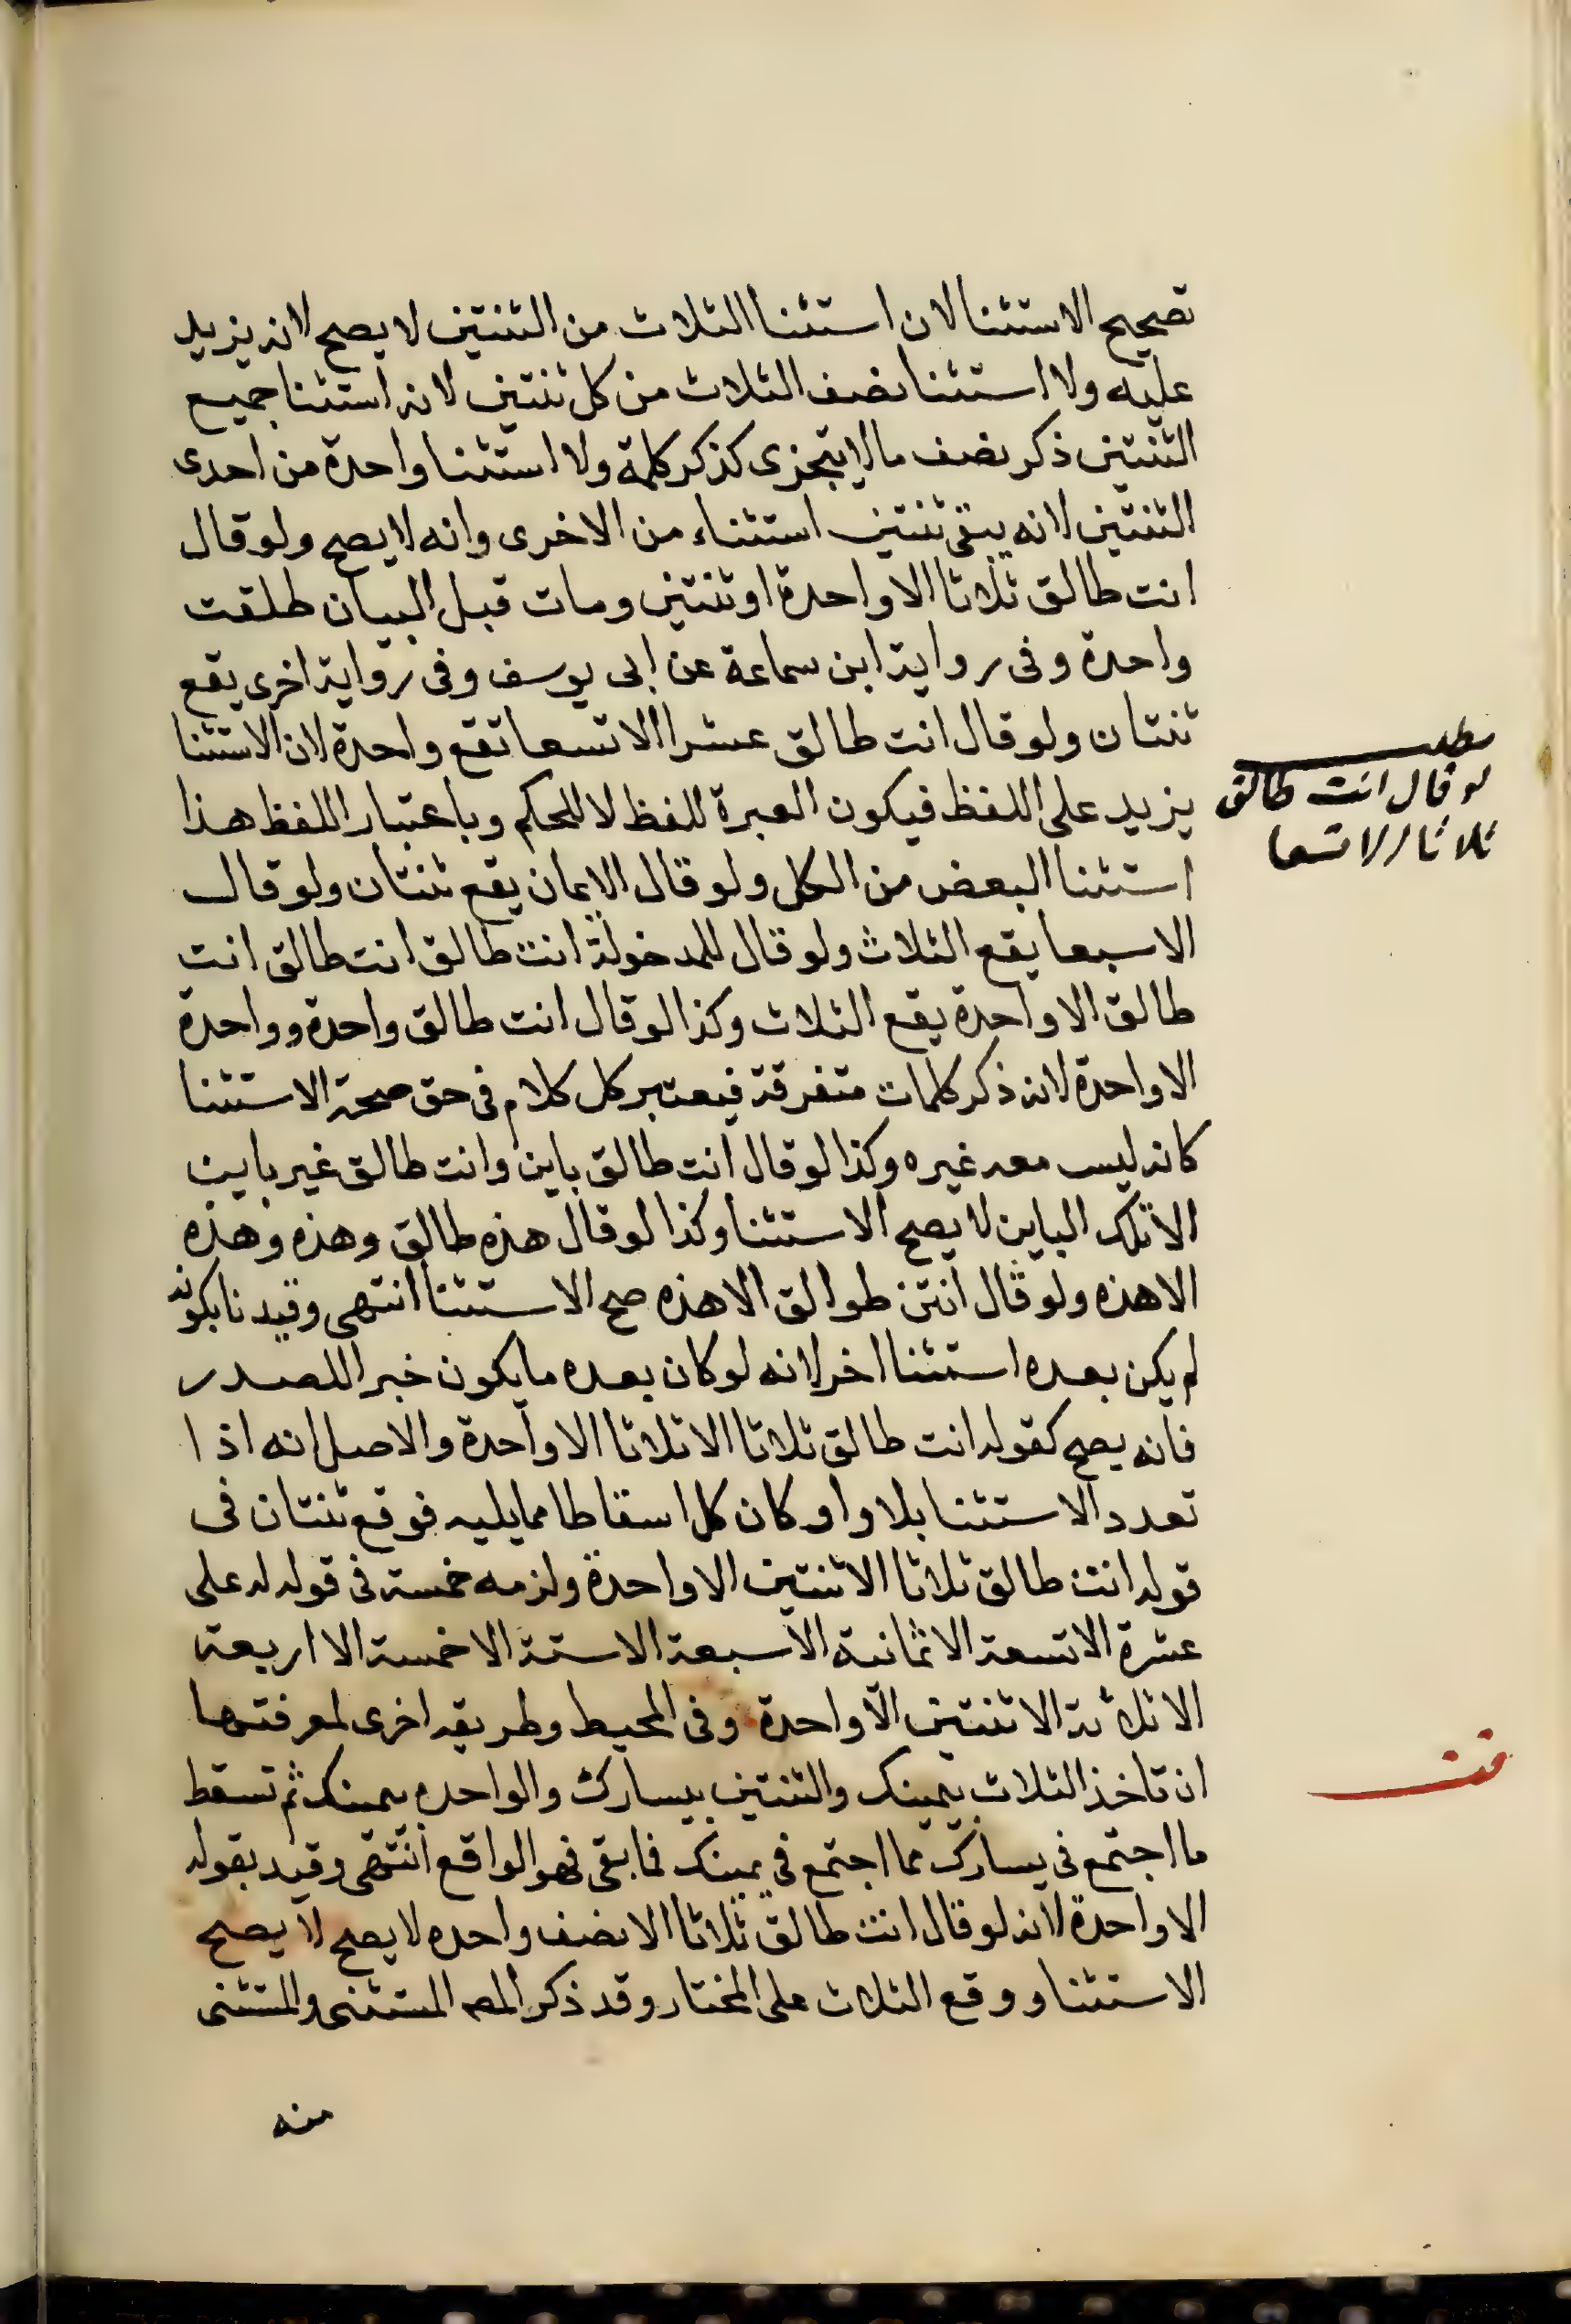 تصحيح الاستثنا لان استثنا الثلاث من الثنتين لا يصح لانه يزيد
عليه ولا استثنا نصف الثلاث من كل ثنتين لانه استثنا جميع
الثنتين ذكر نصف مالا يتجزى كذكر كلمة ولا استثنا واحدة من احدى
الثنتين لانه يبقى ثنتين استثناء من الاخرى وانه لا يصح ولو قال
انت طالق ثلاثا الا واحدة او ثنتين ومات قبل البيان طلقت
واحدة وفى رواية ابن سماعة عن ابى يوسف وفى رواية اخرى يقع
ثنتان ولو قال انت طالق عشرا الا تسعا تقع واحدة لان الاستثنا
يزيد على اللفظ فيكون العبرة للفظ لا للحكم وباعتبار اللفظ هذا
استثنا البعض من الكل ولو قال الا ثمان يقع ثنتان ولو قال
الا سبعا يقع الثلاث ولو قال للمدخولة انت طالق انت طالق انت
طالق الا واحدة يقع الثلاث وكذا لو قال انت طالق واحدة وواحدة
الا واحدة لانه ذكر كلمات متفرقة فيعتبر كل كلام فى حق صحة الاستثنا
كانه ليس معه غيره وكذا لو قال انت طالق باين وانت طالق غير باين
الا تلك الباين لا يصح الاستثنا وكذا لو قال هذه طالق وهذه وهذه
الا هذه ولو قال انتن طوالق الا هذه صح الاستثنا انتهى وقيدنا بكونه
لم يكن بعده استثنا اخر لانه لو كان بعده ما يكون خبرا للصدر
فانه يصح كقوله انت طالق ثلاثا الا ثلاثا الا واحدة والاصل انه اذا
تعدد الاستثنا بلا واو كان كل اسقاطا مما يليه فوقع ثنتان فى
قوله انت طالق ثلاثا الا ثنتين الا واحدة ولزمه خمسة فى قوله له على
عشرة الا تسعة الا ثمانية الا سبعة الا ستة الا خمسة الا اربعة
الا ثلاثة الا ثنتين الا واحدة وفى المحيط وطريقه اخرى لمعرفتها
ان تاخذ الثلاث بيمينك والثنتين بيسارك والواحده بيمينك ثم تسقط
ما اجتمع فى يسارك مما اجتمع فى يمينك فما بقى فهو الواقع انتهى وقيد بقوله
الا واحدة لانه لو قال انت طالق ثلاثا الا نصف واحده لا يصح لا يصح
الاستثنا ووقع الثلاث على المختار وقد ذكر المص المستثنى والمستثنى
منه
مطلب
لو قال انت طالق
ثلاثا الا تسعا